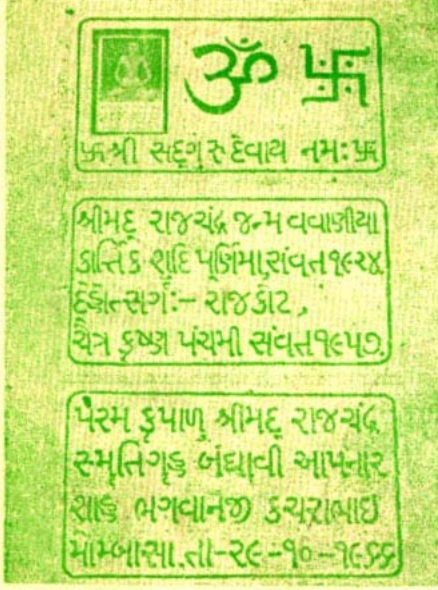 ૐ 卐
卐શ્રી સદ્ગુરુદેવાય નમઃ卐
શ્રીમદ્ રાજચંદ્ર જન્મ વવાણીયા
કાર્તિક શુદિ પૂર્ણિમા,સંવત ૧૯૨૪
દેહોત્સર્ગઃ- રાજકોટ,
ચૈત્ર કૃષ્ણ પંચમી સંવત ૧૯૫૭,
પરમ કૃપાળુ શ્રીમદ્ રાજચંદ્ર
સ્મૃતિગૃહ બંધાવી આપનાર
શાહ ભગવાનજી કચરાભાઇ
મોમ્બાસા.તા-૨૯-૧૦-૧૯૬૬